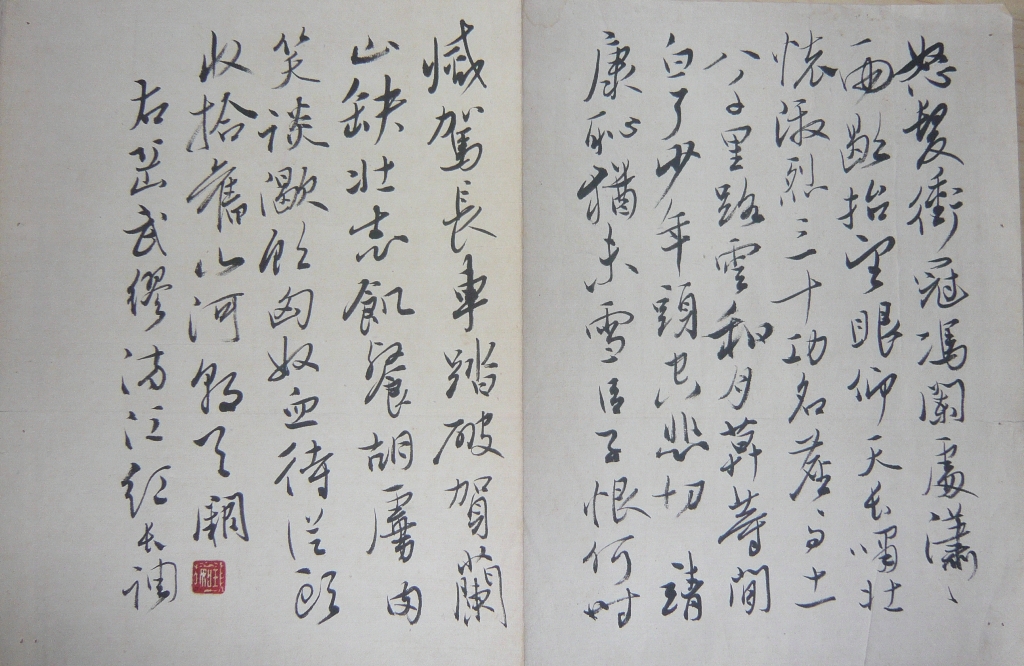 怒髮衝冠馮闌處瀟、
雨歇抬望眼仰天長嘯壯
懷激烈三十功名塵与土
八千里路雲和月莫等閒
白了少年頭空悲切 靖
康恥猶未雪臣子恨何時
憾駕長車踏破賀蘭
山缺壯志飢餐胡虜肉
笑談渴飲匈奴血待從頭
收拾舊山河朝天闕
右岳武穆滿江紅長調